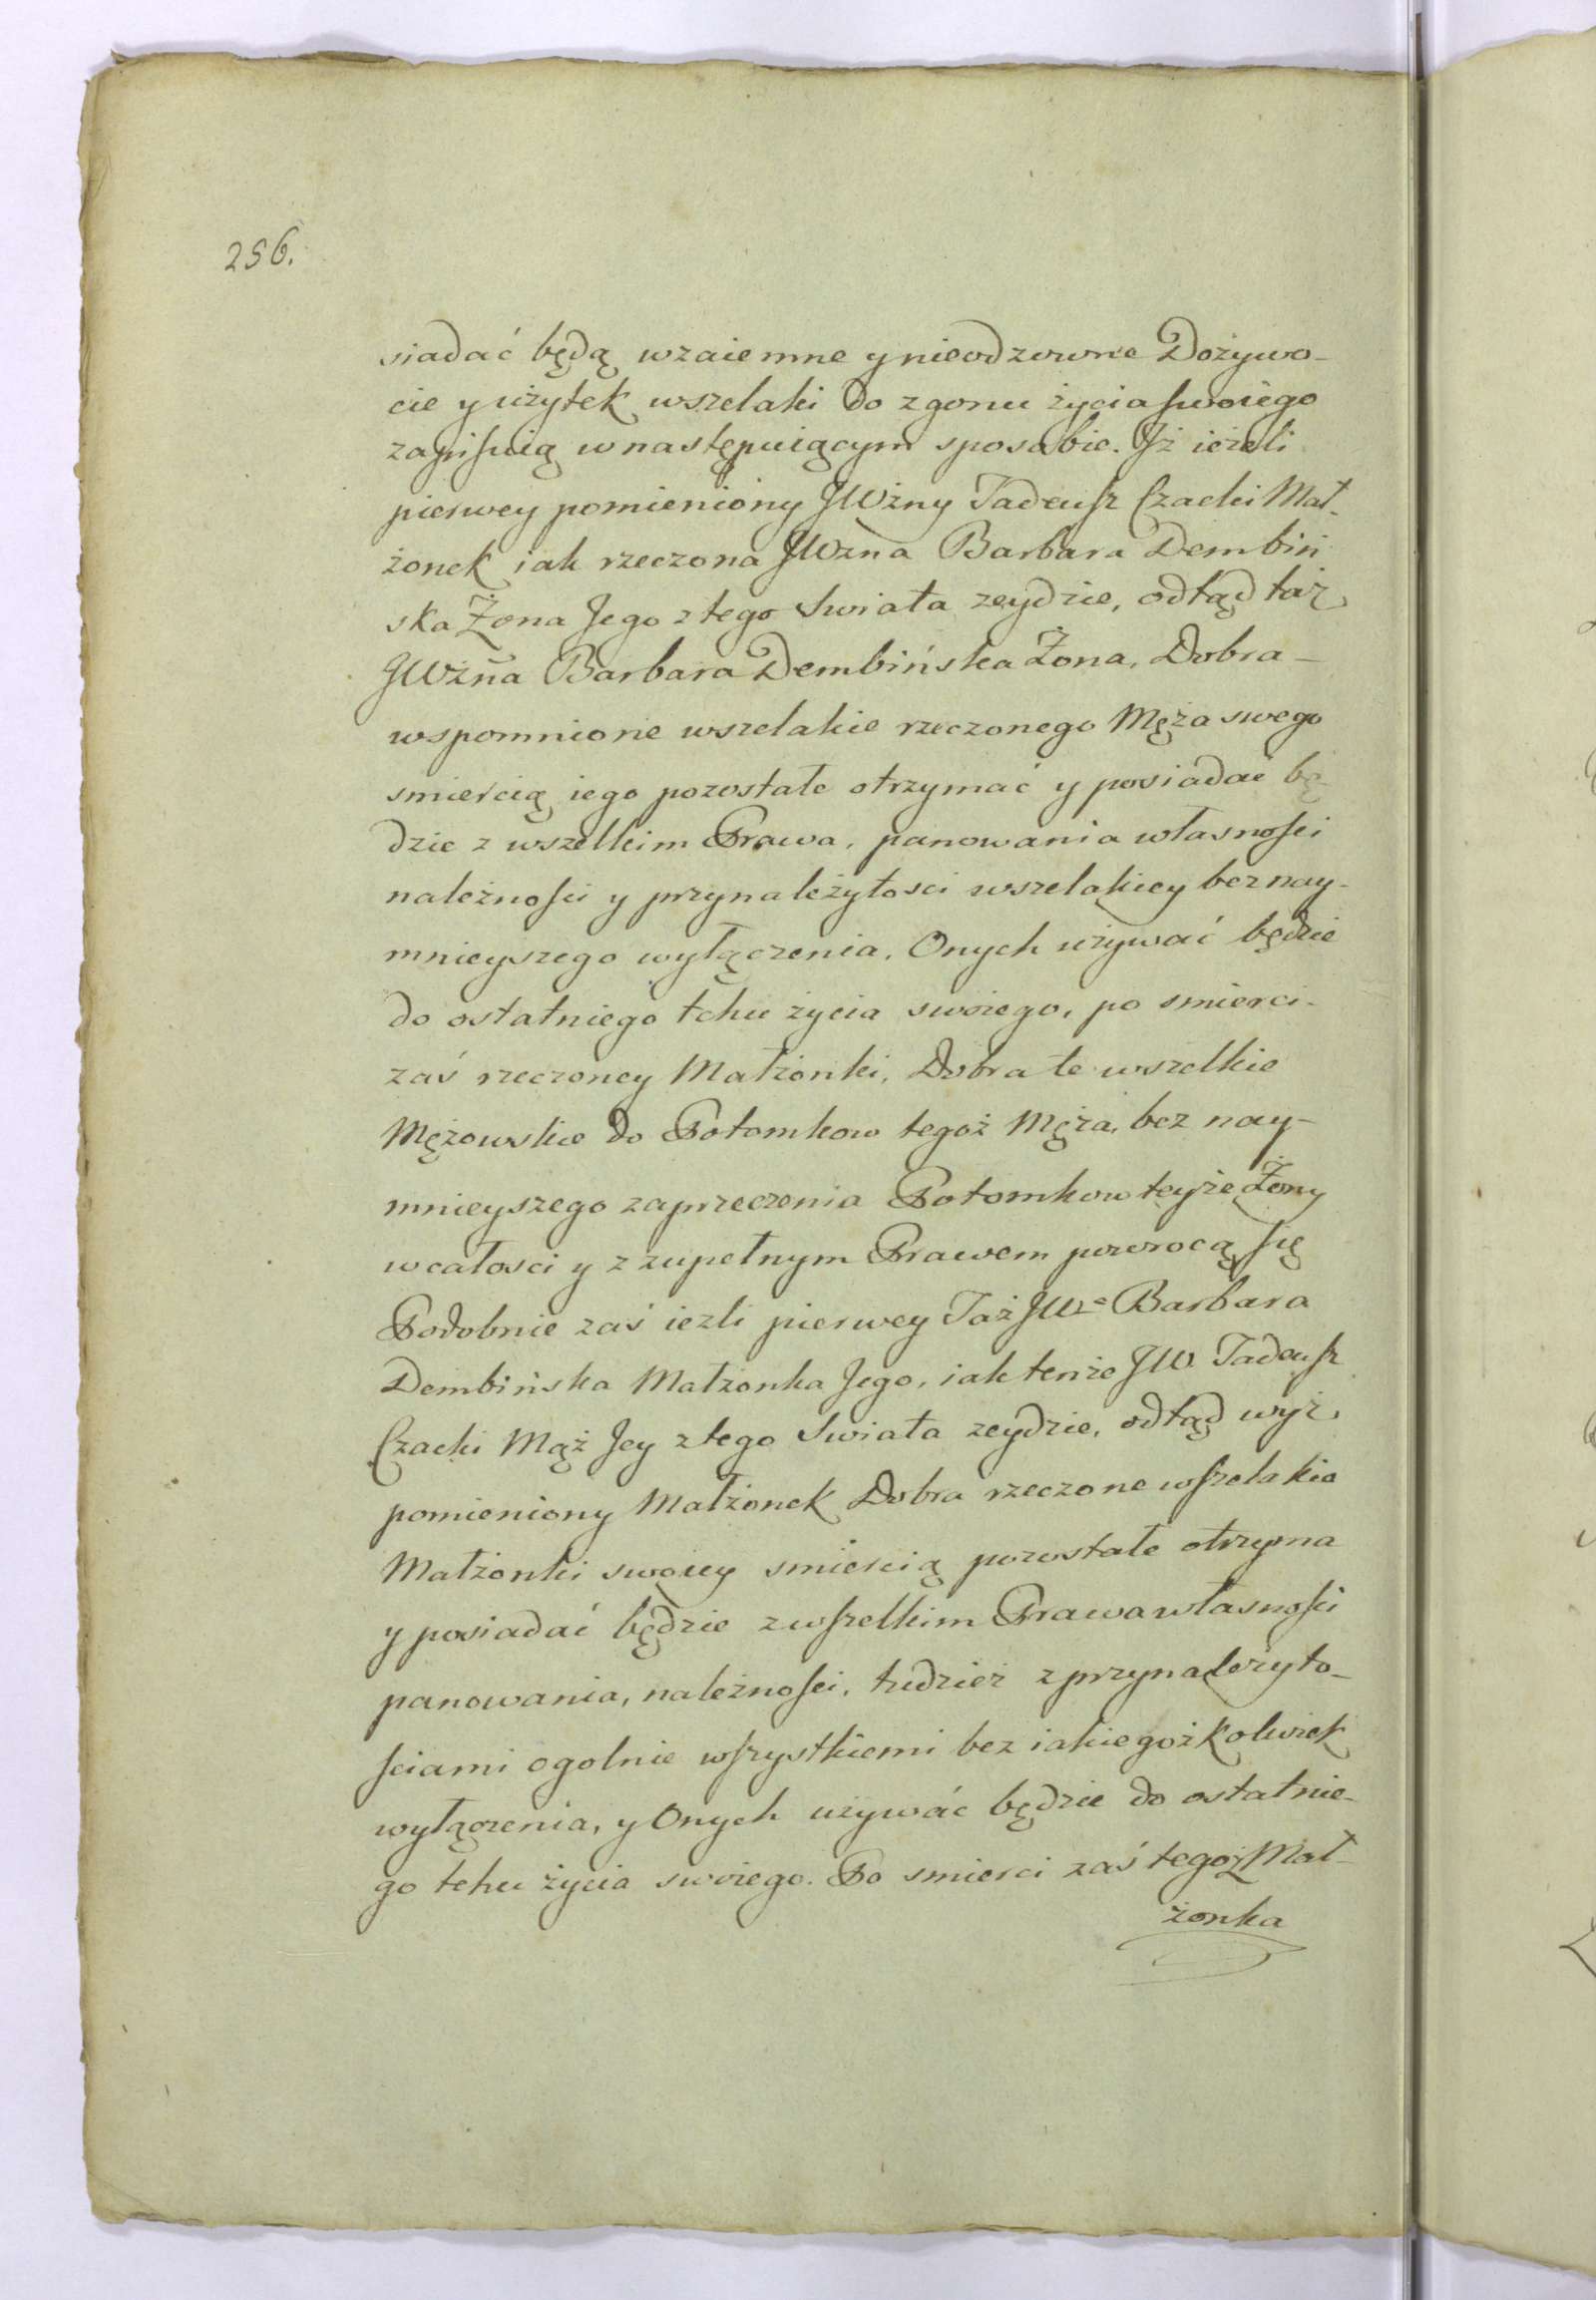 256.
siadać będą wzaiemne y nieodzowne Dożywo-
cie y użytek wszelaki do zgonu życia swoiego
zapisuią w następuiącym sposobie. Jż ieżeli
pierwey pomieniony JWżny Tadeusz Czacki Mał-
żonek iak rzeczona JWżna Barbara Dembiń
ska Żona Jego z tego Swiata zeydzie, odtąd taż
JWżna Barbara Dembińska Żona, Dobra-
wspomnione wszelakie rzeczonego Męża swego
smiercią iego pozostałe otrzymać y posiadać bę-
dzie z wszelkim Prawa, panowania własności
należności y przynależytosci wszelakiey bez nay-
mnieyszego wyłączenia, Onych używać będzie
do ostatniego tchu życia swoiego, po smierci-
zaś rzeczoney Małżonki, Dobra te wszelkie
Mężowskie do Potomkow tegoż Męża, bez nay-
mnieyszego zaprzeczenia Potomkow teyże Żony
w całosci y z zupełnym Prawem powrocą się
Podobnie zaś iezli pierwey Taż JWa Barbara
Dembińska Małżonka Jego, iak tenże JW. Tadeusz
Czacki Mąż Jey z tego Swiata zeydzie, odtąd wyż
pomieniony Małżonek Dobra rzeczone wszelakie
Małżonki swoiey smiercią pozostałe otrzyma
y posiadać będzie z wszelkim Prawa własności
panowania, należności, tudzież z przynależyto-
ściami ogolnie wszystkiemi bez iakiegożkolwiek
wyłączenia, y Onych używać będzie do ostatnie-
go tchu życia swoiego. Po smierci zaś tegoż Mał-
żonka